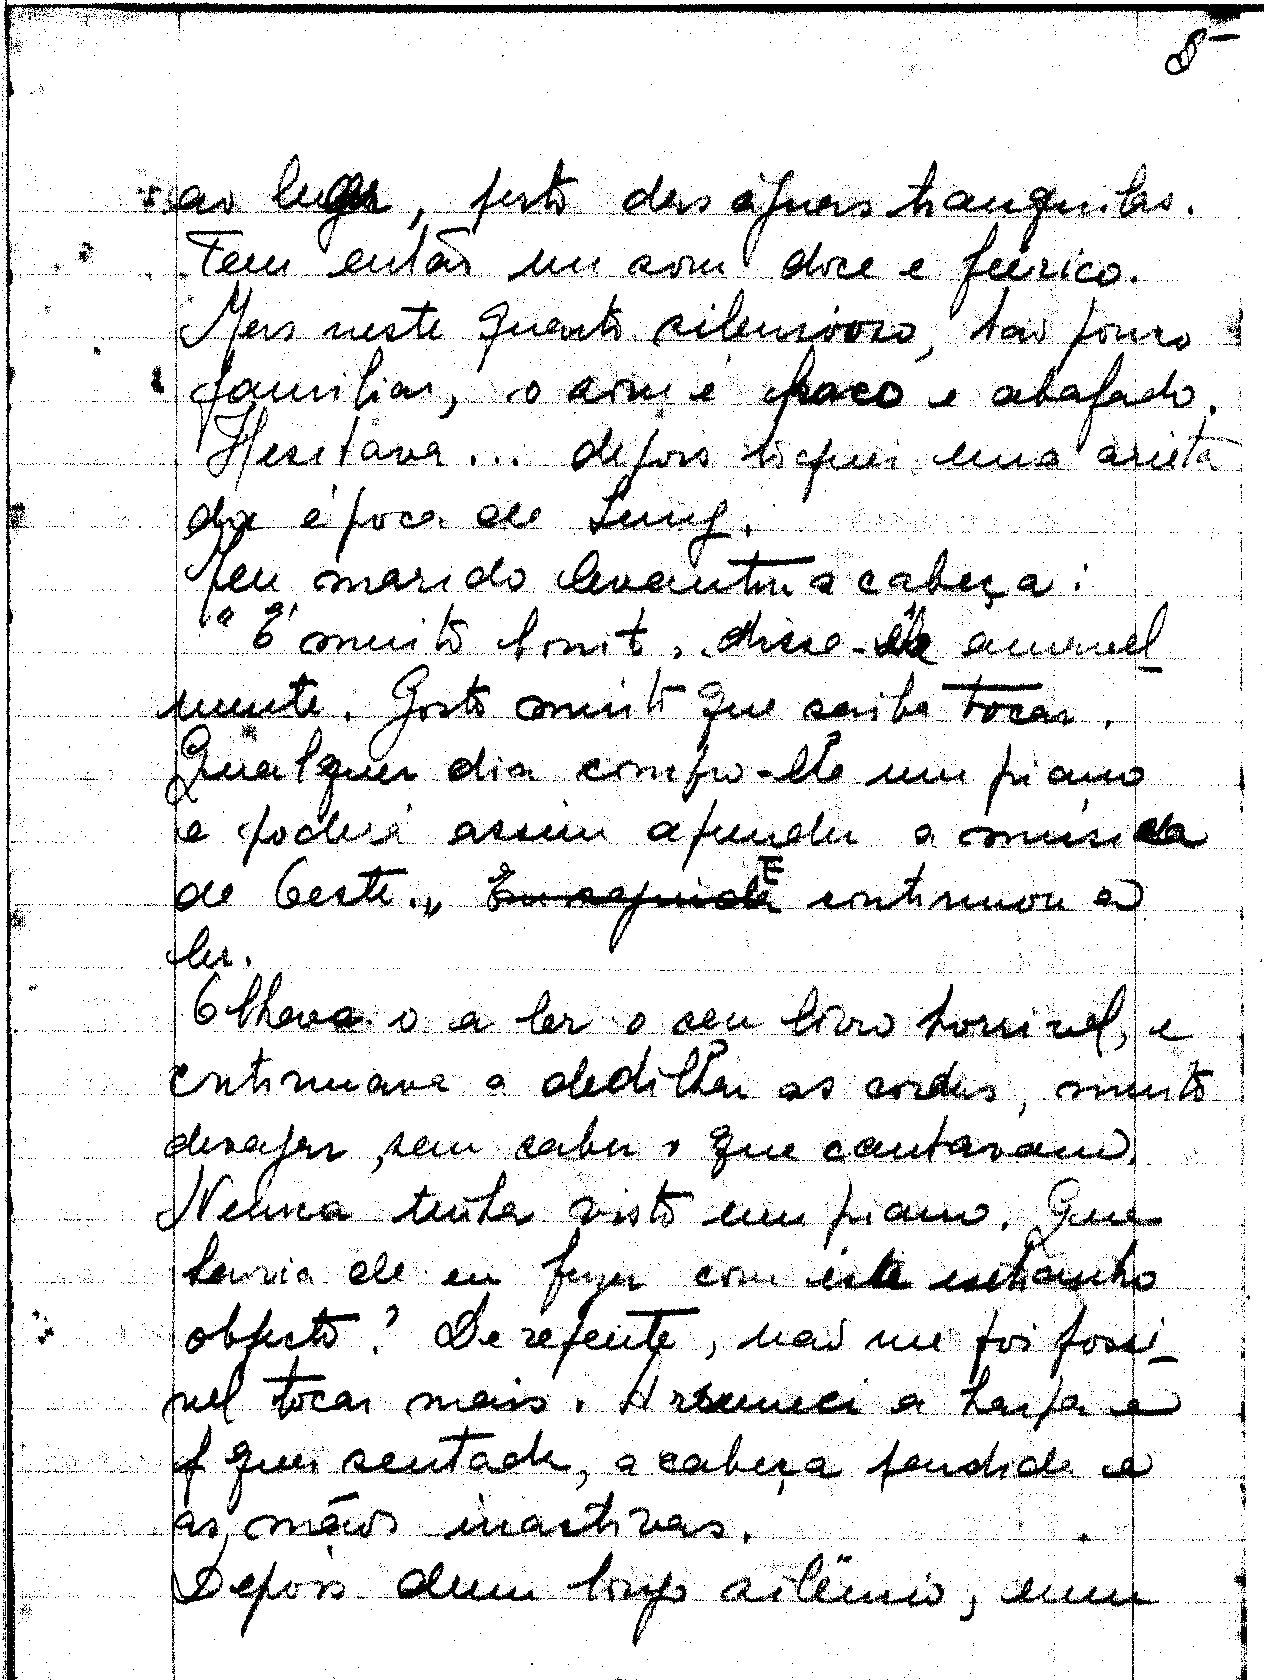 8-
ao lugar, perto das águas tranquilas.
Tem então um som doce e feérico.
Mas neste quarto silencioso, tão pouco
familiar, o som é fraco e abafado.
Hesitava... depois toquei uma arieta
da época de Sung.
Meu marido levantou a cabeça:
"É muito bonito, disse-ele amavel-
mente. Gosto muito que saiba tocar.
Qualquer dia compro-lhe um piano
e poderá assim aprender a música
de Oeste." E continuou a
ler.
Olhava-o a ler o seu livro horrivel, e
continuava a dedilhar as cordas, muito
devagar, sem saber o que cantavam.
Nunca tinha visto um piano. Que
havia de eu fazer com este estranho
objecto? De repente, não me foi possi-
vel tocar mais. Arrumei a harpa e
fiquei sentada, a cabeça pendida e
as mãos inactivas.
Depois dum longo silêncio, num